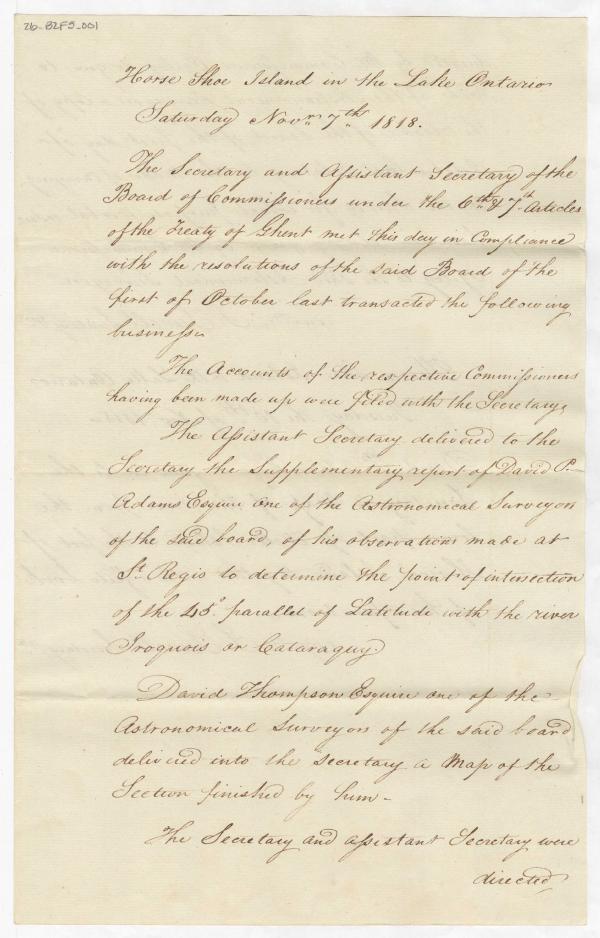 26-B2F5-001
Horse Shoe Island in the Lake Ontario
Saturday Novr. 7th. 1818.
The Secretary and Assistant Secretary of the
Board of Commissioners under the 6th. & 7th Articles
of the Treaty of Ghent met this day in Compliance
with the resolutions of the said Board of the
first of October last transacted the following
business.
The Accounts of the respective Commissioners
having been made up were filed with the Secretary,
The Assistant Secretary delivered to the
Secretary the Supplementary report of David P.
Adams Esquire one of the Astronomical Surveyors
of the said board, of his observations made at
St. Regis to determine the point of intersection
of the 45° parallel of Latitude with the river
Iroquois or Cataraguy.
David Thompson Esquire one of the
Astronomical Surveyors of the said board
delivered into the secretary a Map of the
Section finished by him -
The Secretary and Assistant Secretary were
directed